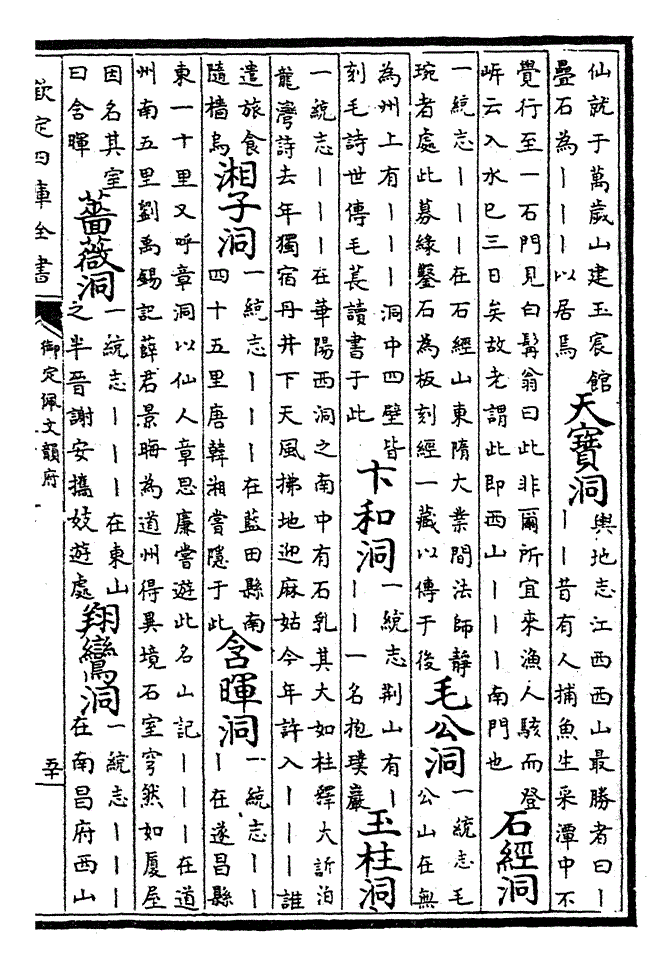 仙就于萬歲山建玉宸館
疊石為丨丨丨以居焉
天寶洞
輿地志江西西山最勝者曰丨
丨丨昔有人捕魚生采潭中不
覺行至一石門見白髯翁曰此非爾所宜來漁人駭而登
岍云入水巳三日矣故老謂此即西山丨丨丨南門也
石經洞
一統志丨丨丨在石經山東隋大業間法師靜
琬者處此募緣鑿石為板刻經一藏以傳于後
毛公洞
一統志毛
公山在無
為州上有丨丨丨洞中四壁皆
刻毛詩世傳毛萇讀書于此
卞和洞
一統志荆山有丨
丨丨一名抱璞巖
玉柱洞
一統志丨丨丨在華陽西洞之南中有石乳其大如柱繹大訢泊
龍灣詩去年獨宿丹井下天風拂地迎麻姑今年許入丨丨丨誰
遣旅食
隨檣烏
湘子洞
一統志丨丨丨在藍田縣南
四十五里唐韓湘嘗隱于此
含暉洞
一統志丨丨
丨在遂昌縣
東一十里又呼章洞以仙人章思廉嘗遊此名山記丨丨丨在道
州南五里劉禹錫記薛君景晦為道州得異境石室穹然如厦屋
因名其室
曰含暉
薔薇洞
一統志丨丨丨在東山
之半晉謝安攜妓遊處
翔鸞洞
一統志丨丨丨
在南昌府西山
欽定四庫全書
御定佩文韻府